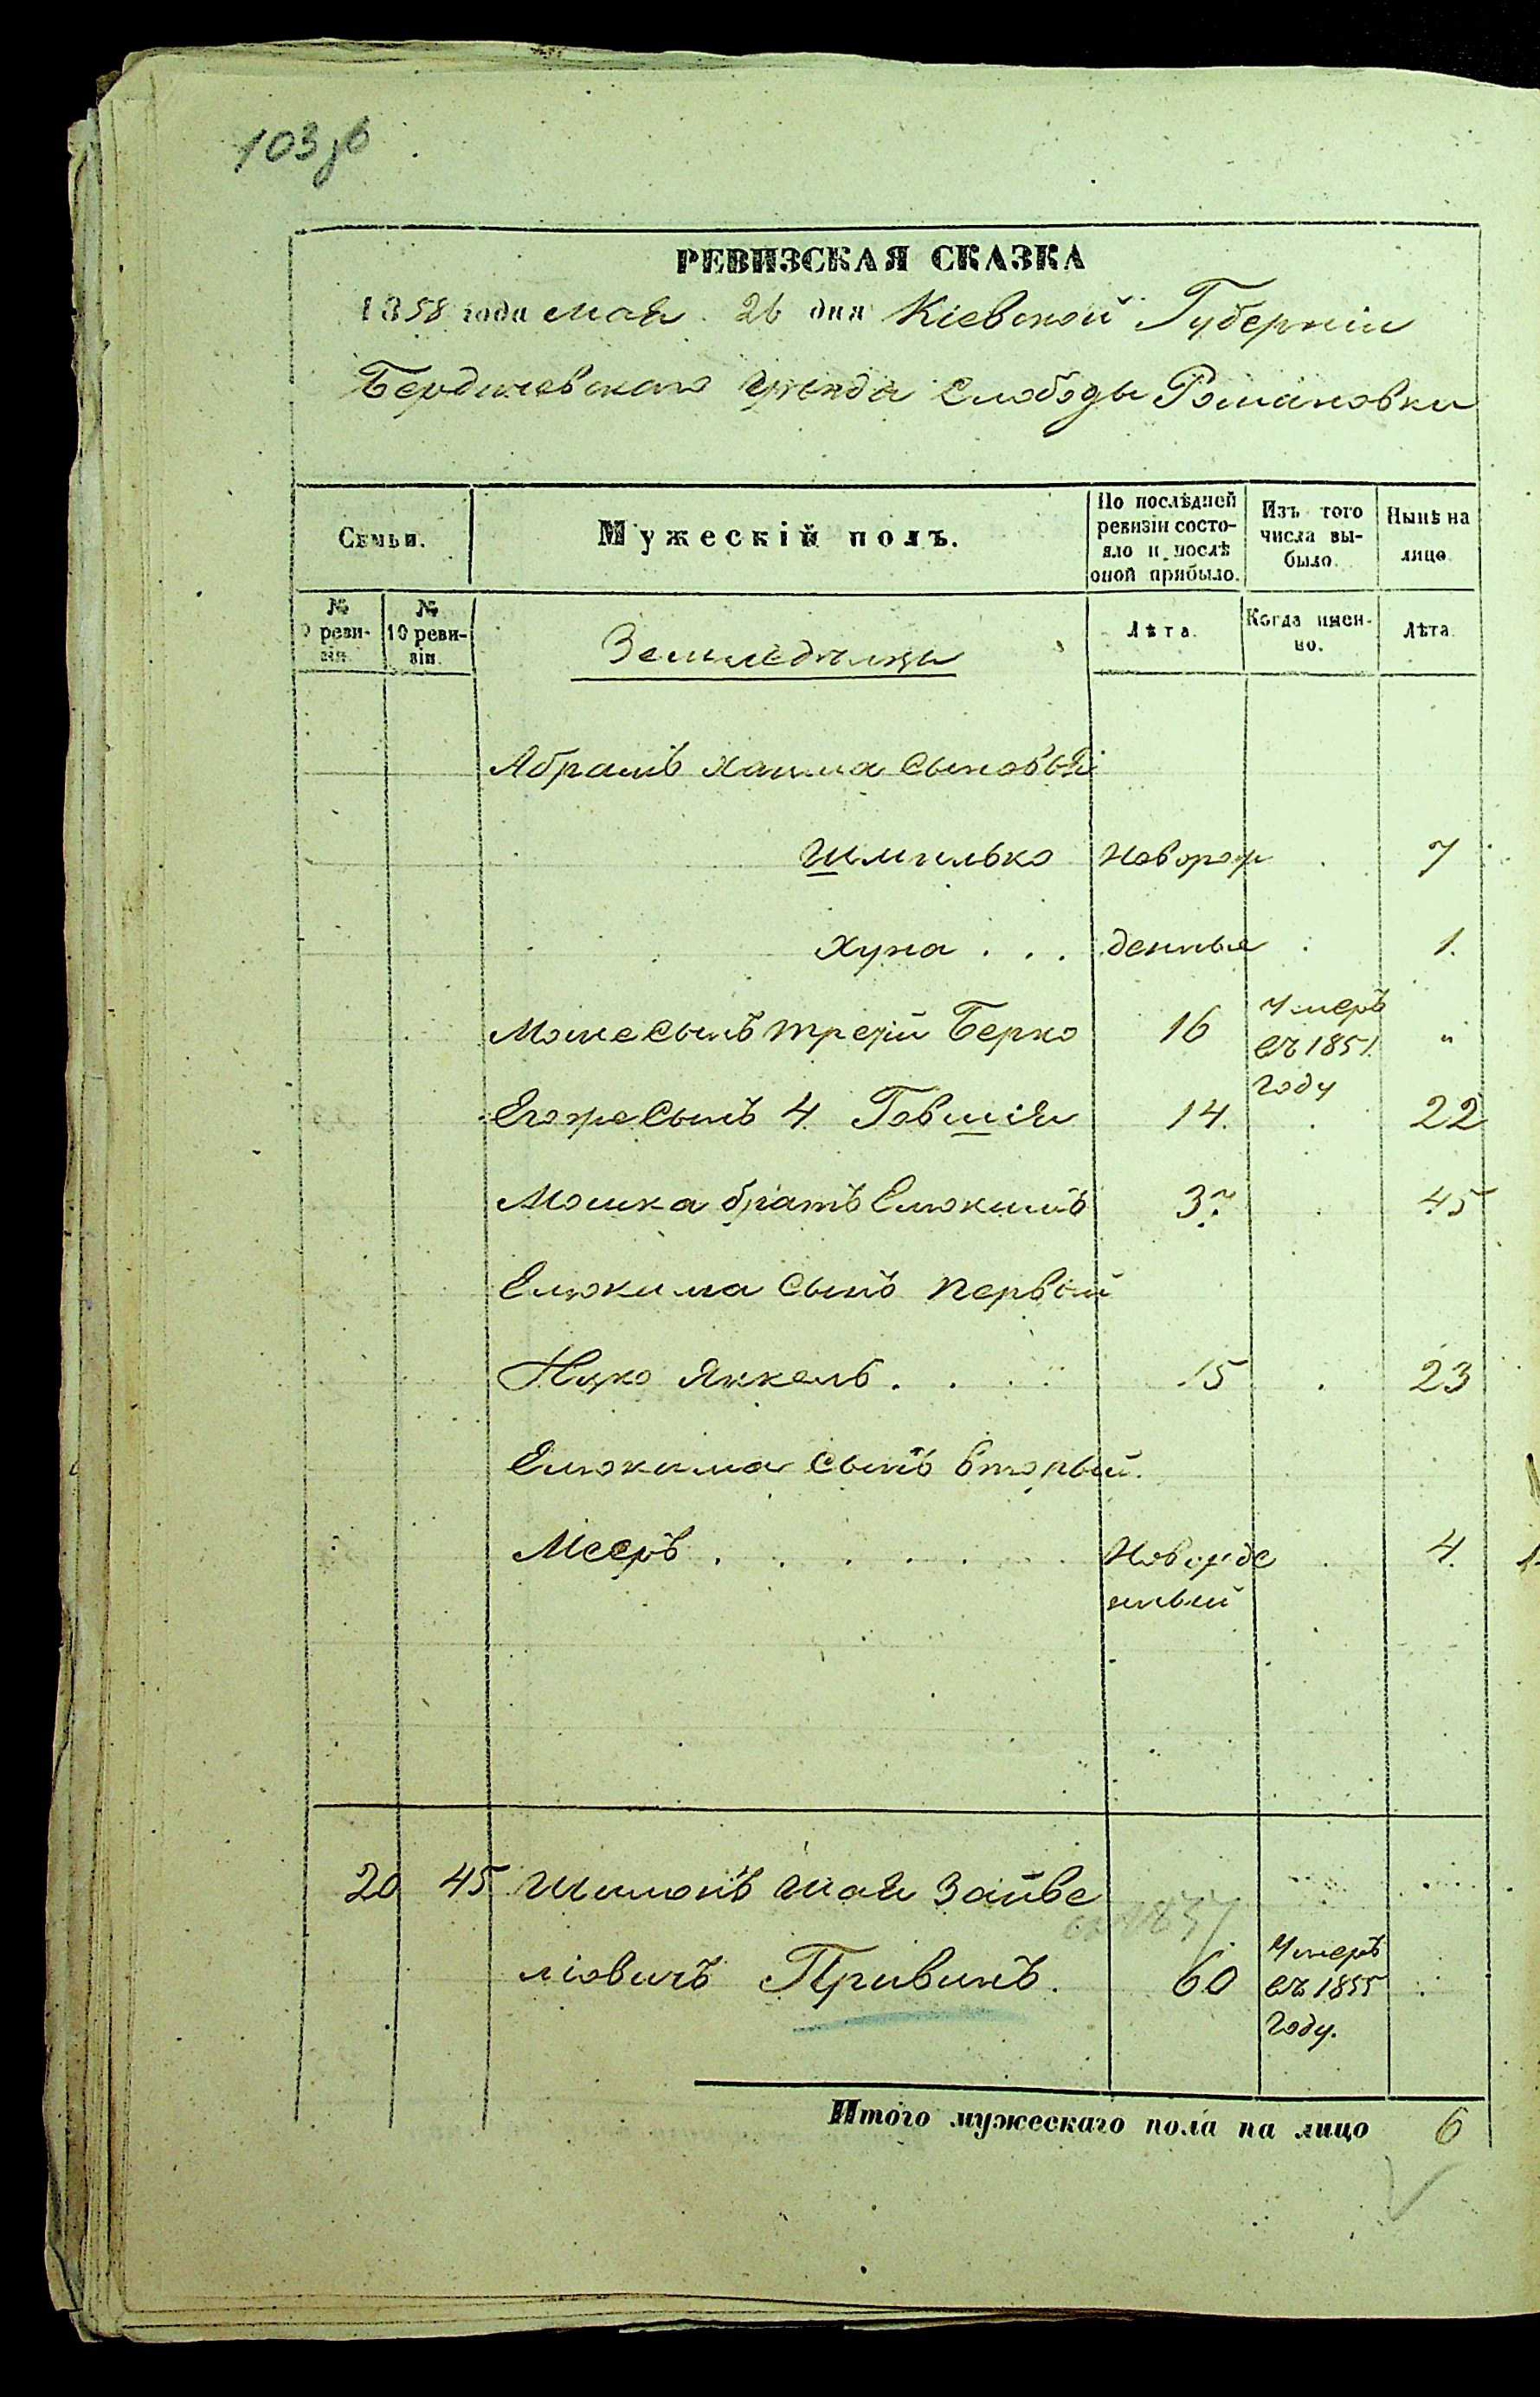 103 об
РЕВИЗСКАЯ СКАЗКА
1858 года мая 26 дня Кіевской Губерніи
Бердичевскаго уѣзда Слободы Романовки
Семьи.
Мужескій полъ.
По послѣдней ревизіи состояло и послѣ оной прибыло.
Изъ того числа выбыло.
Нынѣ на лицо.
№ 9 ревизіи.
№ 10 ревизіи.
Земледѣльцы
Лѣта.
Когда именно.
Лѣта.
Абрамъ Хаима сыновья
Шмилько Новорож . 7
Хуна . . . денные . 1.
Мошка сынъ третій Берко 16 Умеръ въ 1851 году "
Егоже сынъ 4 Говшія 14. . 22
Мошка братъ Елюкимъ 37 . 45
Елюкима сынъ первый
Ицко Янкель . . . 15 . 23
Елюкима сынъ вторый.
Мееръ . . . . . . Новорожде . 4.
нный
20 45 Шимонъ Шая Зайве
ліовичъ Привинъ. 60 Умеръ въ 1855 году.
Итого мужескаго пола на лицо 6